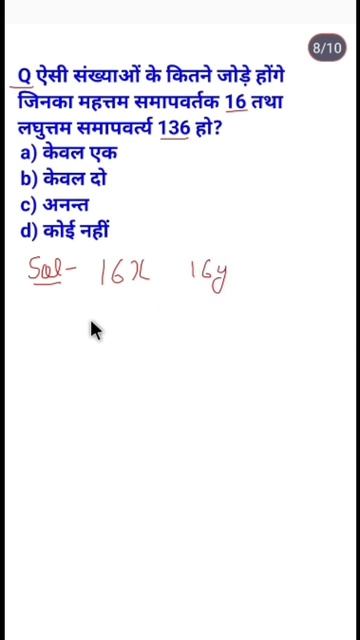 8/10
Q ऐसी संख्याओं के कितने जोड़े होंगे
जिनका महत्तम समापवर्तक 16 तथा
लघुत्तम समापवर्त्य 136 हो?
a) केवल एक
b) केवल दो
c) अनन्त
d) कोई नहीं
Sol- 16x 16y